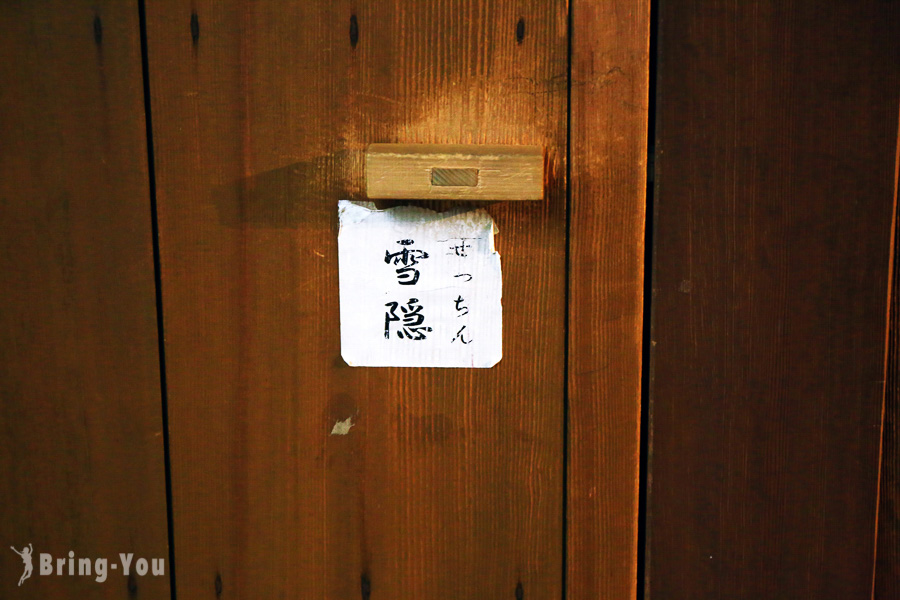 せっちん
雪隠
Bring-You